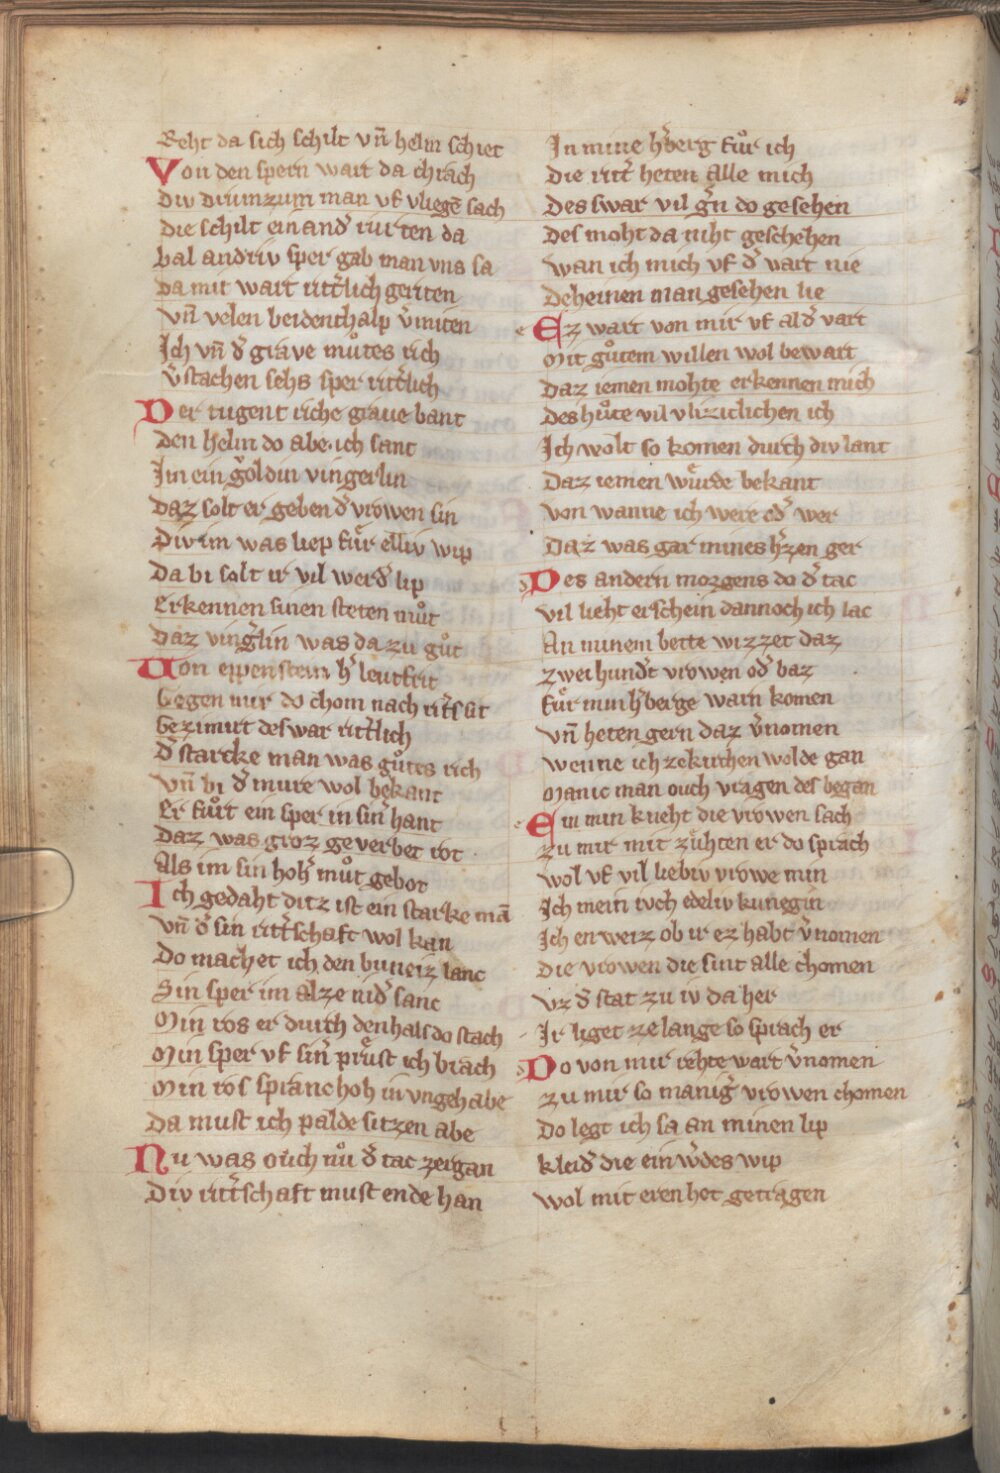 Reht da sich schilt vn̄ helm schiet
Von den spern wart da chrach
Div Drumzum man vf vliegē sach
Die schilt ein and͛ rurten da
bal andriv sper gab man vns sa
Da mit wart ritt͛lich geriten
vn̄ velen beidenthalp v͛miten
Ich vn̄ d͛ grave můtes rich
v͛stachen sehs sper ritt͛lich
Der tugent riche graue bant
den helm do abe. ich sant
Im ein guldin vingerlin
Daz solt er geben d͛ vrowen sin
Div im was liep fuͤr elliv wip
Da bi solt ir vil werd͛ lip
Erkennen sinen steten můt
Daz ving͛lin was da zu gůt
Von eppenstein h͛ leutfrit
Gegen mir do chom nach rit͛s sit
Gezimirt deswar ritt͛lich
d͛ starcke man was gůtes rich
vn̄ bi d͛ mure wol bekant
Er fůrt ein sper in sin͛ hant
Daz was groz geverbet rot
Als im sin hoh͛ můt gebot
Ich gedaht ditz ist ein starke mā
vn̄ d͛ sin ritt͛schaft wol kan
Do machet ich den buneiz lanc
Sin sper im alze nid͛ sanc
Min ros er durch den hals do stach
Min sper vf sin͛ pruͤst ich brach
Min ros spranc hoh in vngehabe
Da must ich palde sitzen abe
Nu was ouch nů d͛ tac zergan
Div ritt͛schaft must ende han
In mine h͛berg fůr ich
Die ritt͛ heten alle mich
Des swar vil g͛n do gesehen
Des moht da niht geschehen
wan ich mich vf d͛ vart nie
Deheinen man gesehen lie
Ez wart von mir vf al d͛ vart
Mit gůtem willen wol bewart
Daz iemen mohte erkennen mich
Des hůte vil vliziclichen ich
Ich wolt so komen durch div lant
Daz iemen wuͤrde bekant
von wanne ich were od͛ wer
Daz was gar mines h͛zen ger
Des andern morgens do d͛ tac
vil lieht erschein dannoch ich lac
An minem bette wizzet daz
zwei hund͛t vrowen od͛ baz
fuͤr min h͛berge warn komen
vn̄ heten gern daz v͛nomen
wenne ich ze kirchen wolde gan
Manic man ouch vragen des began
Ein min kneht die vrowen sach
zu mir mit zuͤhten er do sprach
wol vf vil liebiv vrowe min
Ich mein ivch edeliv kunegin
Ich enweiz ob ir ez habt v͛nomen
die vrowen die sint alle chomen
vz d͛ stat zu iv da her
Ir liget ze lange so sprach er
Do von mir rehte wart v͛nomen
zu mir so manig͛ vrowen chomen
Do legt ich sa an minen lip
kleid͛ die ein w͛des wip
wol mit eren het getragen